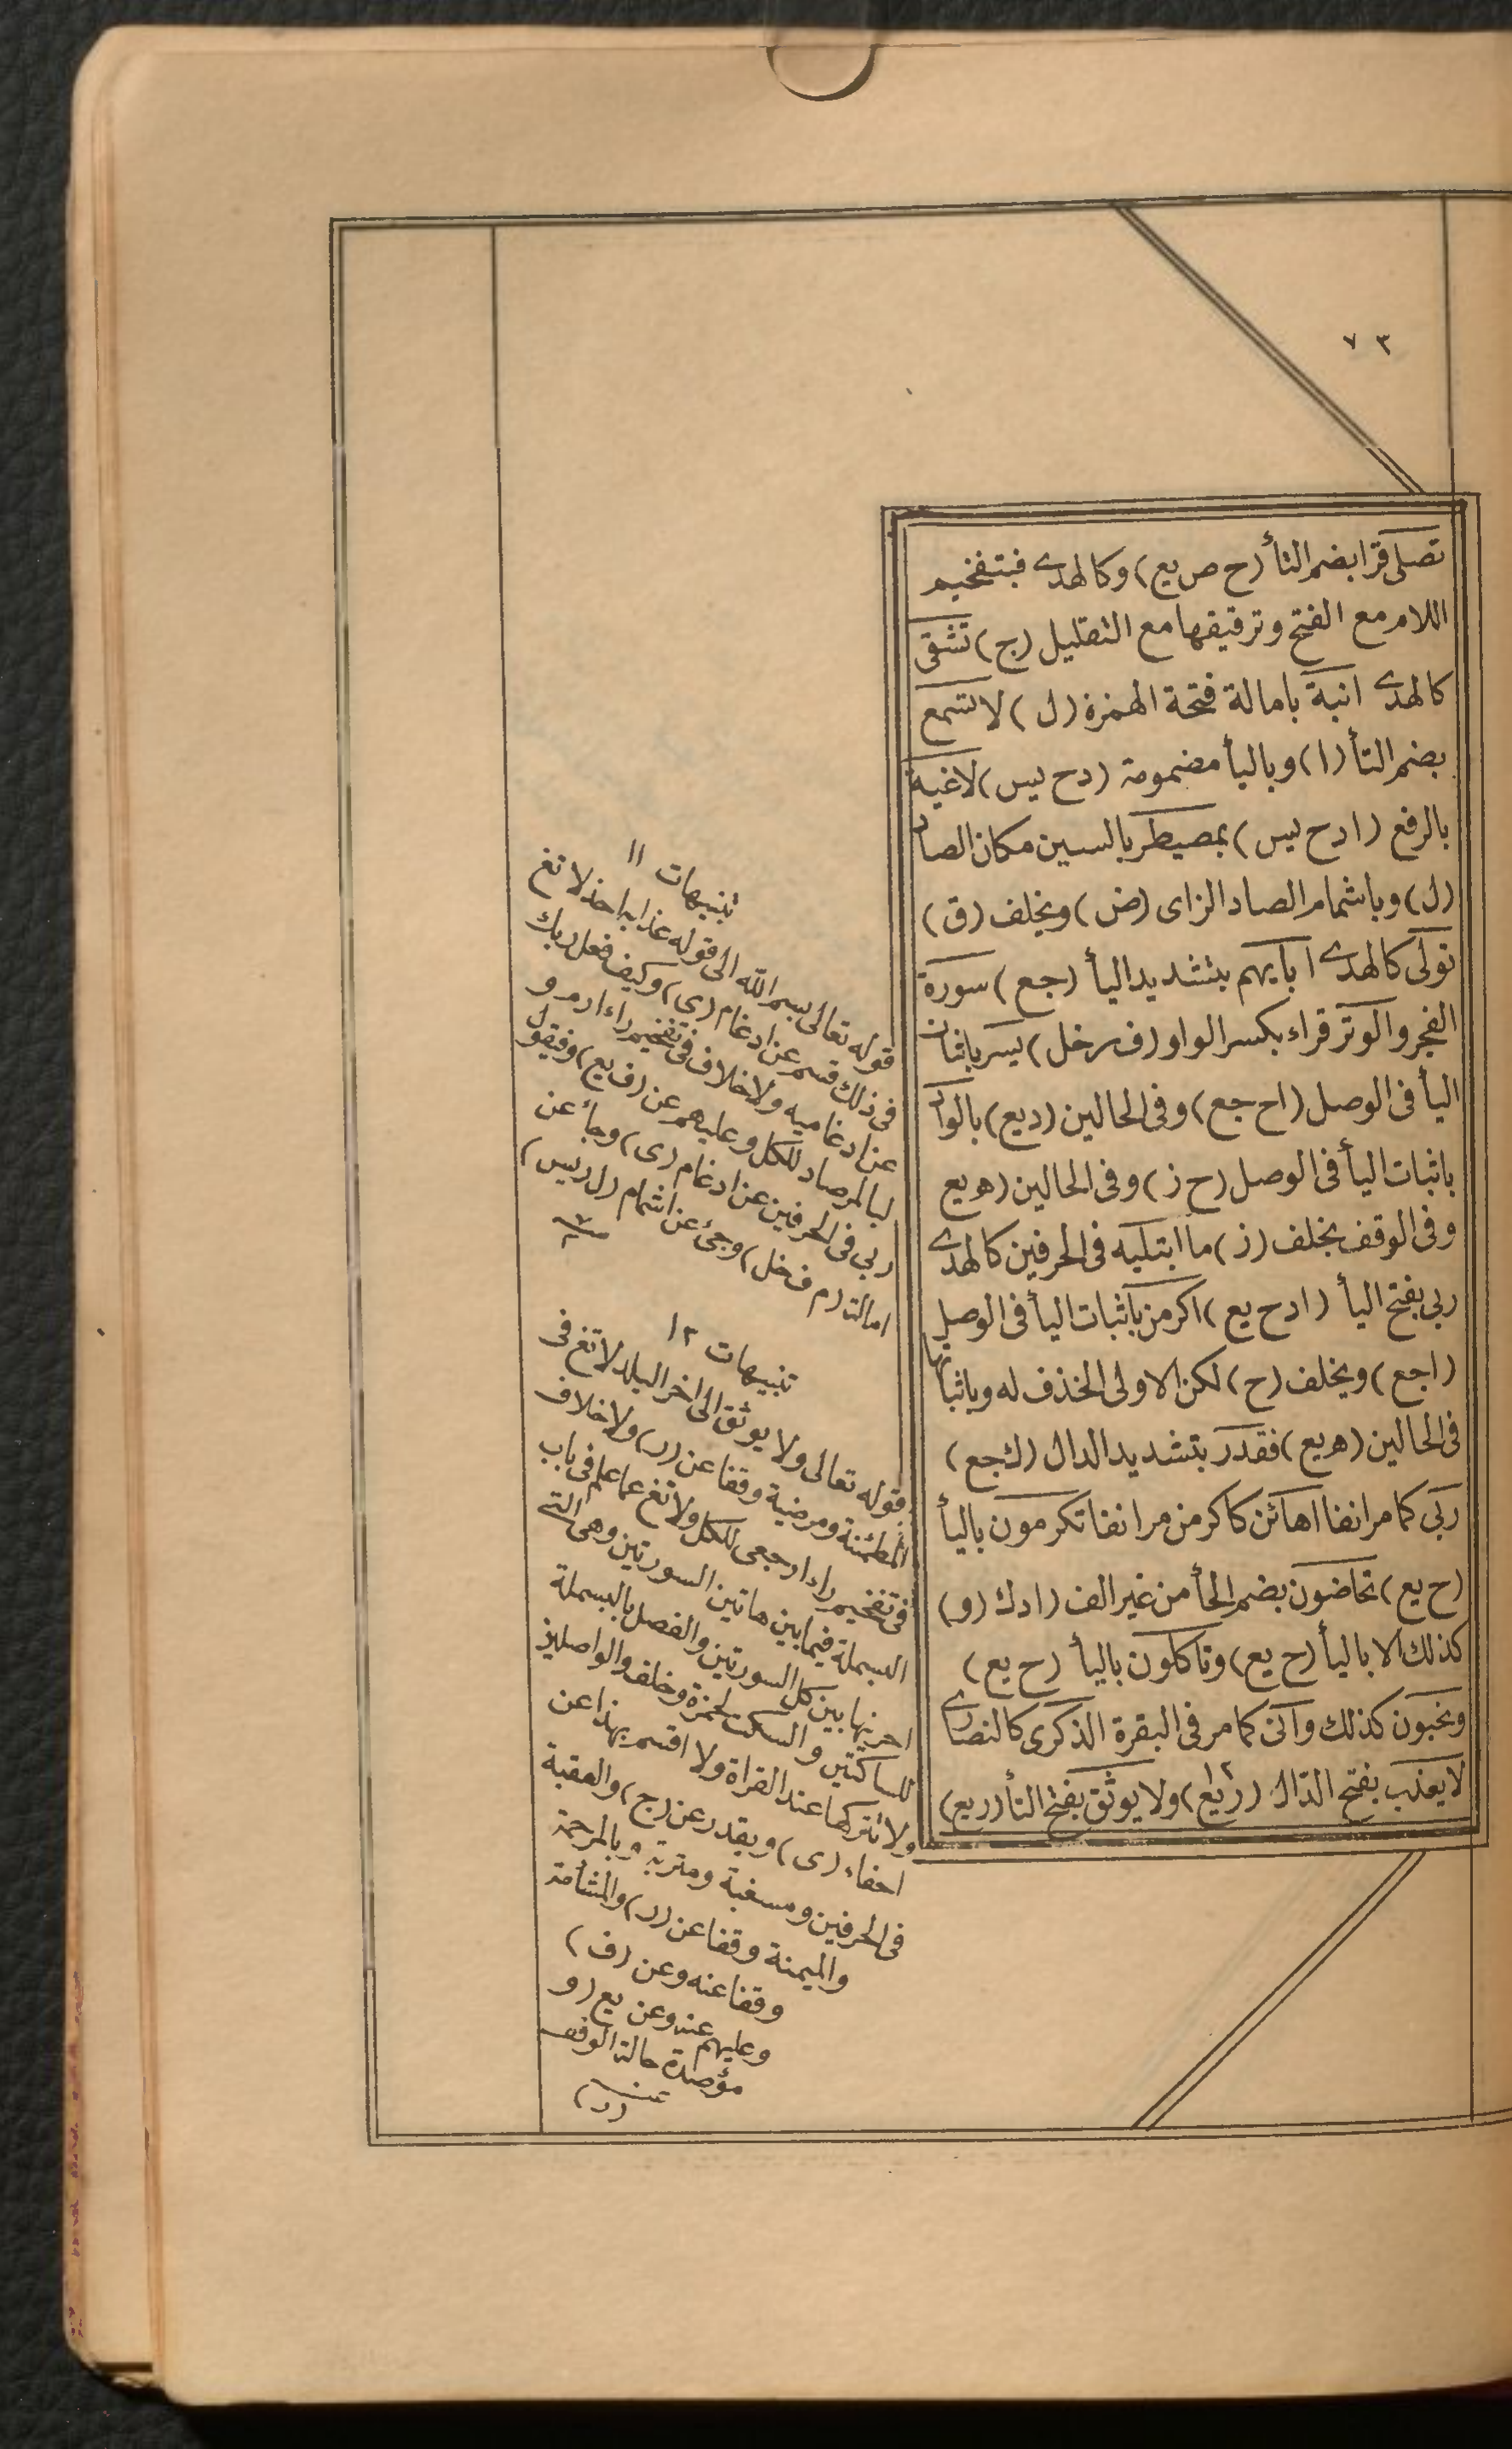 ٧٣
تصلى قرا بضم التأ (ح ص يع) وكالهدى فبتفخيم
اللام مع الفتح وترقيقها مع التقليل (ج) تشقى
كالهدى انية بامالة فتحة الهمزة (ل) لا تسمع
بضم التأ (ا) وباليأ مضمومة (دح يس) لاغية
بالرفع (ادح يس) بمصيطر بالسين مكان الصاد
(ل) وباشمام الصاد الزاى (ض) وبخلف (ق)
تولى كالهدى ايابهم بتشديد اليأ (جع) سورة
الفجر والوتر قراء بكسر الواو (ف ر خل) يسر باثبات
اليأ فى الوصل (اح جع) وفى الحالين (ديع) بالواد
باثبات اليأ فى الوصل (ح ز) وفى الحالين (ه يع
وفى الوقف بخلف (ز) ما ابتليه فى الحرفين كالهدى
ربى بفتح اليأ (ادح يع) اكرمن باثبات اليأ فى الوصل
(اجع) وبخلف (ح) لكن الاولى الحذف له وباثباتها
فى الحالين (ه يع) فقدر بتشديد الدال (ك جع)
ربى كما مر انفا اهانن كاكرمن مر انفا تكرمون باليأ
(ح يع) تحاضون بضم الحأ من غير الف (ادك (و)
كذلك الا باليأ (ح يع) وتاكلون باليأ (ح يع)
وتحبون كذلك وانى كما مر فى البقرة الذكرى كالنصارى
لا يعذب بفتح الذال (ريع) ١٢ ولا يوثق بفتح الثأ (ريع)
تنبيهات ١١
قوله تعالى بسم الله الى قوله عذابه احد لا تغ
فى ذلك قسم عن ادغام (ى) وكيف فعل ربك
عن ادغاميه ولا خلاف فى تفخيم راء ارم و
لبالمرصاد للكل وعليهم عن (ف يع) وفيقول
ربى فى الحرفين عن ادغام (ى) وجأ عن
امالة (م ف خل) وجئ عن اشمام (ل ر يس)
تنبيهات ١٢
قوله تعالى ولا يوثق الى اخر البلد لا تغ فى
المطمئنة ومرضية وقفا عن (ر) ولا خلاف
فى تفخيم راء ارجعى للكل ولا تغ عما علم فى باب
البسملة فيما بين هاتين السورتين وهى التى
اخرتها بين كل السورتين والفصل بالبسملة
للساكتين والسكت لحمزة وخلف والواصلين
ولا تتركها عند القراة ولا اقسم بهذا عن
اخفاء (ى) ويقدر عن (ج) والعقبة
فى الحرفين ومسغبة ومتربة وبالمرحمة
والميمنة وقفا عن (ر) والمشأمة
وقفا عنه وعن (ف)
وعليهم عنه وعن يع (و
مؤصدة حالة الوقف
عن (ر)